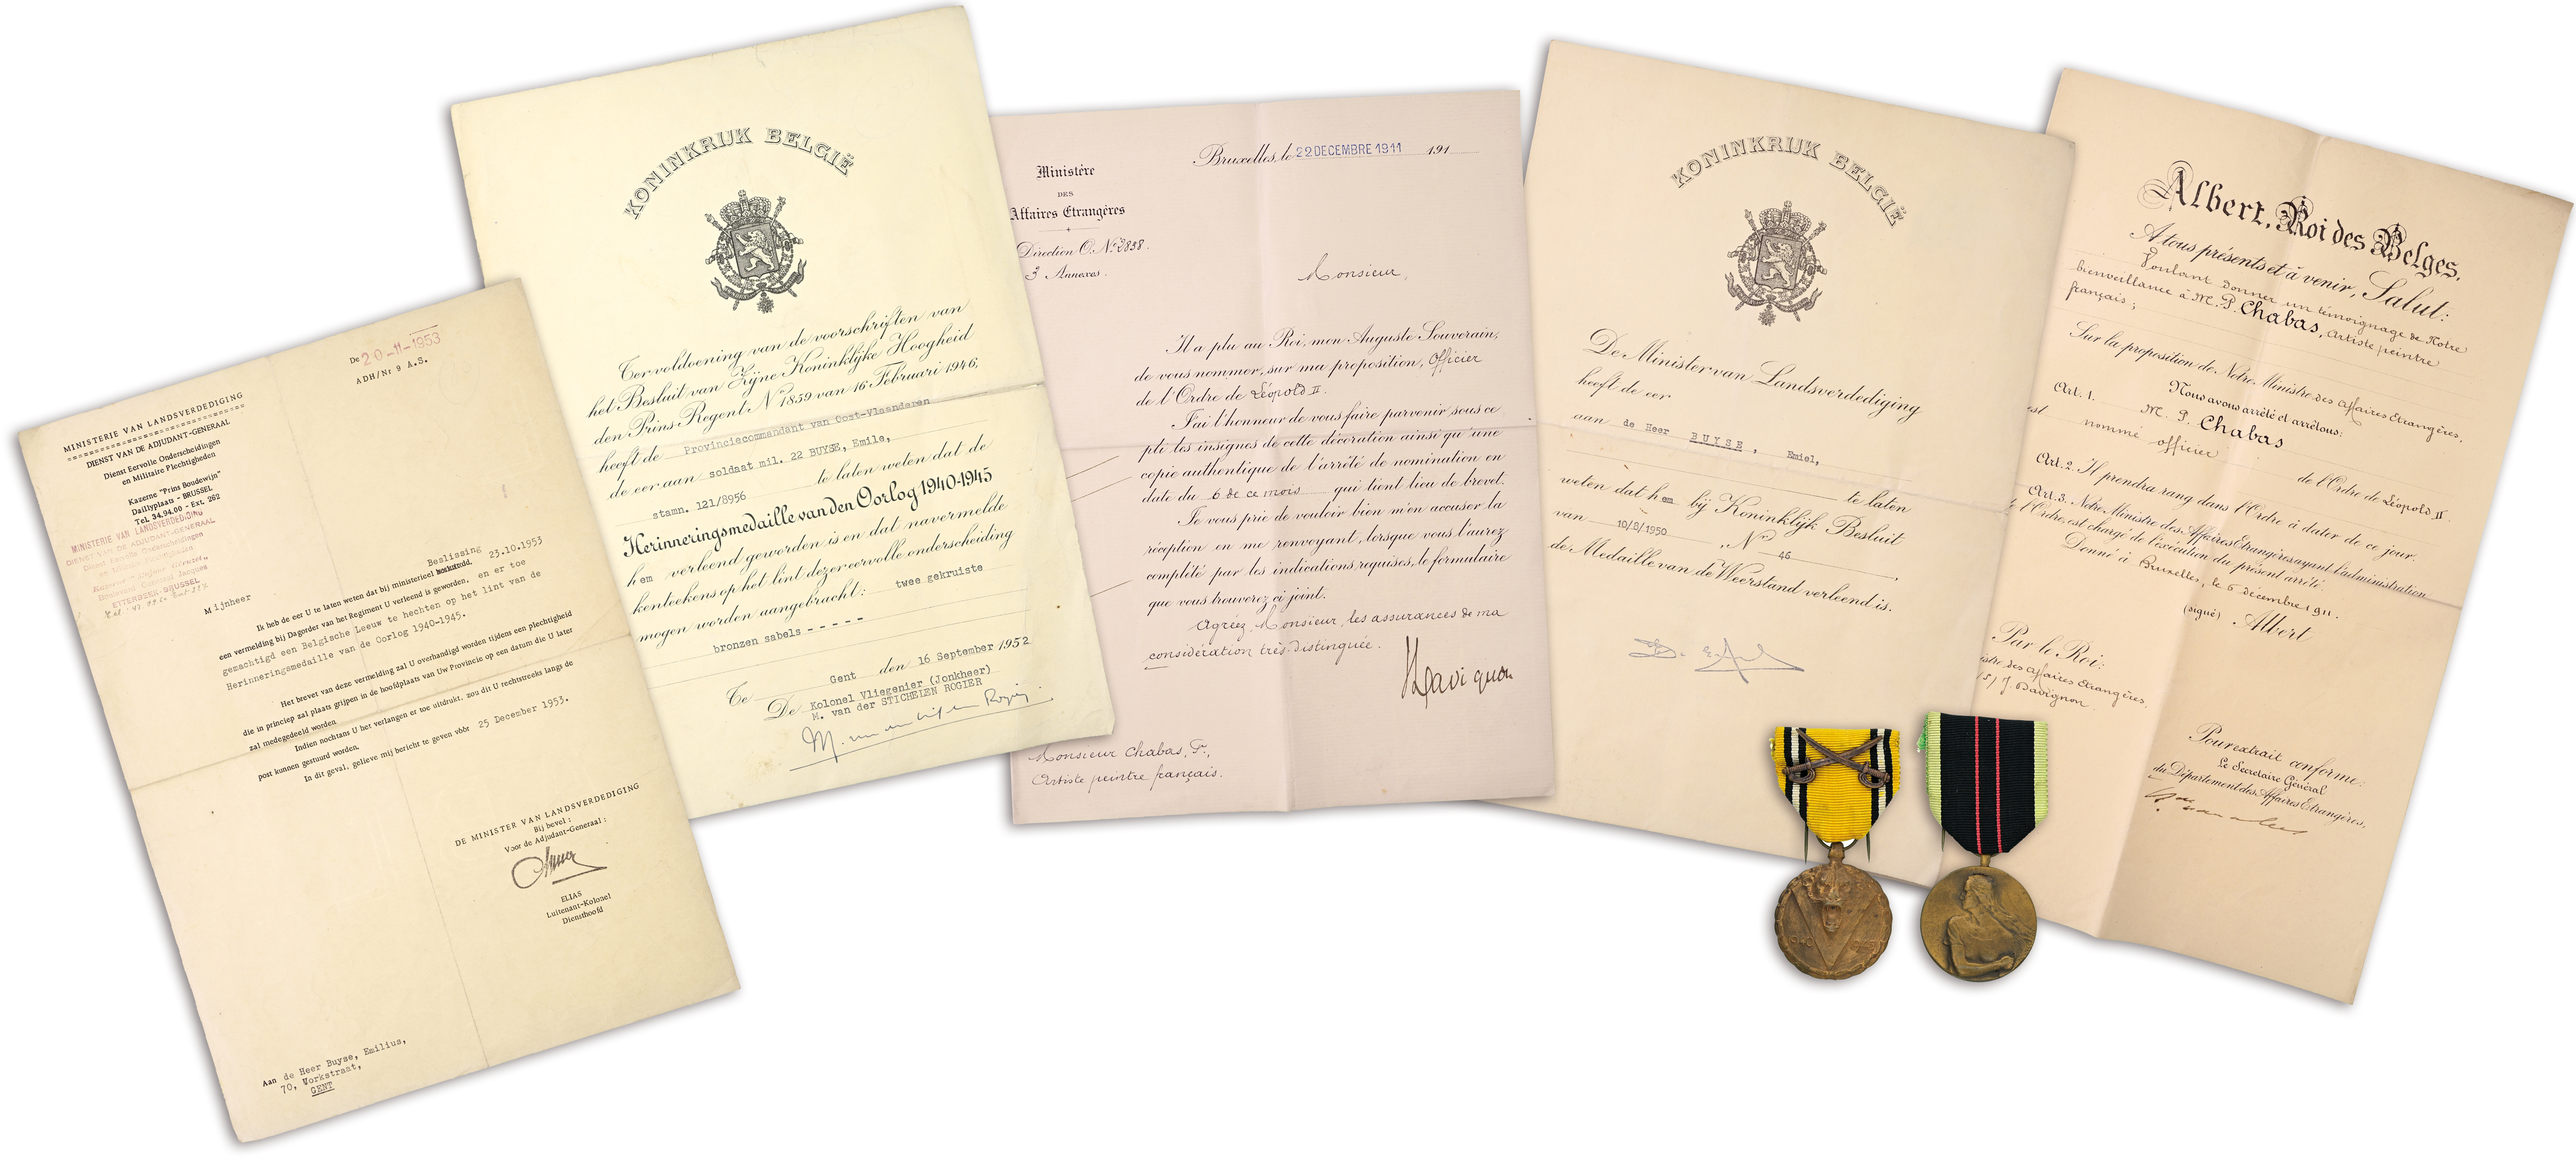 De 20-11-1953
ADH/Nr 9 A.S.
MINISTERIE VAN LANDSVERDEDIGING
DIENST VAN DE ADJUDANT-GENERAAL
Dienst Eervolle Onderscheidingen
en Militaire Plechtigheden
Kazerne "Prins Boudewijn"
Daillyplaats - BRUSSEL
Tel. 34.94.00 - Ext. 262
MINISTERIE VAN LANDSVERDEDIGING
DIENST VAN DE ADJUDANT-GENERAAL
Dienst Eervolle Onderscheidingen
en Militaire Plechtigheden
Boulevard Generaal Jacques
ETTERBEEK-BRUSSEL
Mijnheer
Beslissing
Ik heb de eer U te laten weten dat bij ministerieel 23.10.1953
een vermelding bij Dagorder van het Regiment U verleend is geworden, en er toe
gemachtigd een Belgische Leeuw te hechten op het lint van de
Herinneringsmedaille van de Oorlog 1940-1945.
Het brevet van deze vermelding zal U overhandigd worden tijdens een plechtigheid
die in principe zal plaats grijpen in de hoofdplaats van Uw Provincie op een datum die U later
zal medegedeeld worden
Indien nochtans U het verlangen er toe uitdrukt, zou dit U rechtstreeks langs de
post kunnen gestuurd worden.
In dit geval, gelieve mij bericht te geven vòòr 25 December 1953.
DE MINISTER VAN LANDSVERDEDIGING
Bij bevel :
Voor de Adjudant-Generaal :
ELIAS
Luitenant-Kolonel
Diensthoofd
Aan de Heer Buyse, Emilius,
70, Workstraat,
GENT
KONINKRIJK BELGIË
Ter voldoening van de voorschriften van
het Besluit van Zijne Koninklijke Hoogheid
den Prins-Regent Nr 1859 van 16 Februari 1946,
heeft de Provinciecommandant van Oost-Vlaanderen
de eer aan soldaat mil. 22 BUYSE, Emile,
stamn. 121/8956 te laten weten dat de
Herinneringsmedaille van den Oorlog 1940-1945
hem verleend geworden is en dat navermelde
kenteekens op het lint dezer eervolle onderscheiding
mogen worden aangebracht: twee gekruiste
bronzen sabels - - - - -
Te Gent den 16 September 1952
De Kolonel Vliegenier (Jonkheer)
M. van der STICHELEN ROGIER
M. van der Stichelen Rogier
Ministère
DES
Affaires Etrangères
Direction O. No 2838.
3 Annexes.
Bruxelles, le 22 DECEMBRE 1911 191
Monsieur,
Il a plu au Roi, mon Auguste Souverain,
de vous nommer, sur ma proposition, Officier
de l'Ordre de Léopold II.
J'ai l'honneur de vous faire parvenir sous ce
pli les insignes de cette décoration ainsi qu'une
copie authentique de l'arrêté de nomination en
date du 6 de ce mois qui tient lieu de brevet.
Je vous prie de vouloir bien m'en accuser la
réception en me renvoyant, lorsque vous l'aurez
complété par les indications requises, le formulaire
que vous trouverez ci joint.
Agréez, Monsieur, les assurances de ma
considération très distinguée.
Davignon
Monsieur Chabas, P.,
Artiste peintre français.
KONINKRIJK BELGIË
De Minister van Landsverdediging
heeft de eer
aan de Heer BUYSE, Emiel,
te laten
weten dat hem bij Koninklijk Besluit
van 10/8/1950, Nr 46,
de Medaille van de Weerstand verleend is.
Albert, Roi des Belges,
A tous présents et à venir, Salut:
Voulant donner un témoignage de Notre
bienveillance à M. P. Chabas, artiste peintre
français;
Sur la proposition de Notre Ministre des Affaires Etrangères,
Nous avons arrêté et arrêtons:
Art. 1. M. P. Chabas
est nommé officier
de l'Ordre de Léopold II
Art. 2. Il prendra rang dans l'Ordre à dater de ce jour.
Art. 3. Notre Ministre des Affaires Etrangères ayant l'administration
de l'Ordre, est chargé de l'exécution du présent arrêté.
Donné à Bruxelles, le 6 décembre 1911.
(signé) Albert
Par le Roi:
istre des Affaires Etrangères,
(s) J. Davignon.
Pour extrait conforme:
Le Secrétaire Général
du Département des Affaires Etrangères,
1940 1945